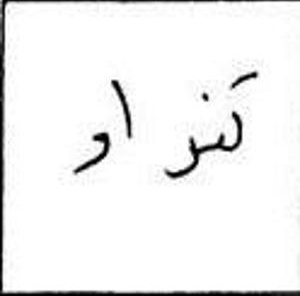 تنراو